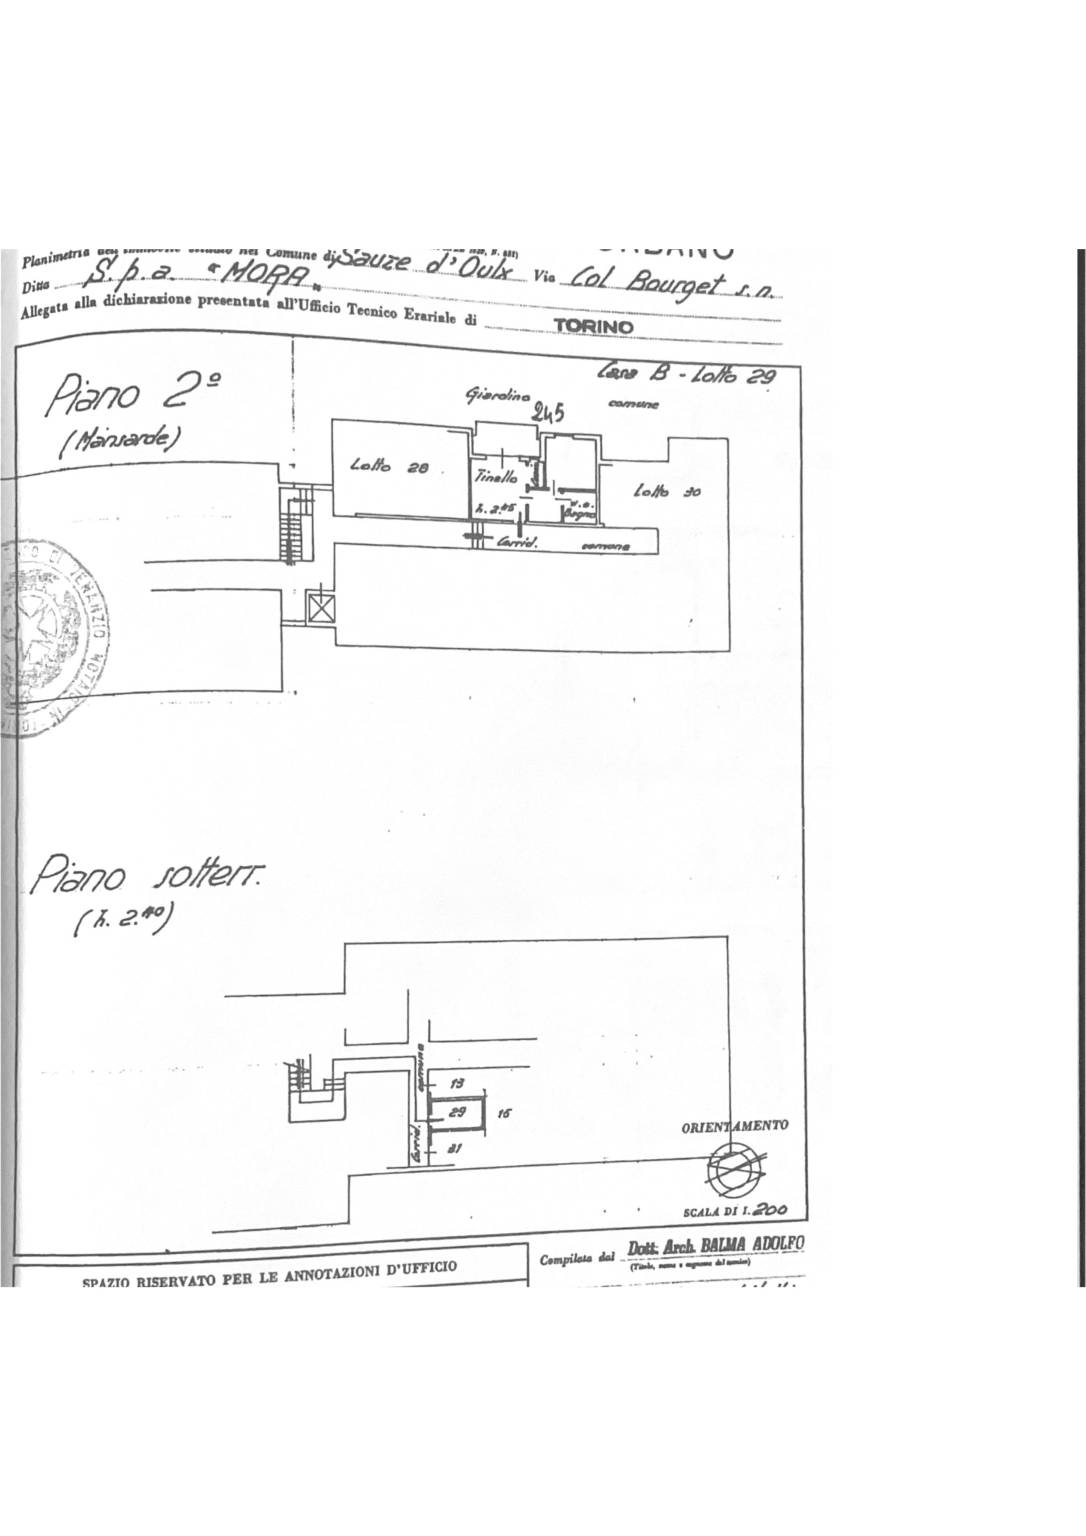 Planimetria dell'immobile situato nel Comune di Sauze d'Oulx Via Col Bourget s.n.
URBANO
Ditta S.p.a. "MORA"
Allegata alla dichiarazione presentata all'Ufficio Tecnico Erariale di TORINO
Casa B - Lotto 29
Piano 2º
(Mansarde)
Giardino comune
245
Lotto 28
Tinello
h. 2.45
w.c.
Bagno
Lotto 30
Corrid. comune
Piano sotterr.
(h. 2.40)
comune
13
29
15
Corrid.
31
ORIENTAMENTO
SCALA DI 1. 200
SPAZIO RISERVATO PER LE ANNOTAZIONI D'UFFICIO
Compilata dal Dott. Arch. BALMA ADOLFO
(Titolo, nome e cognome del tecnico)